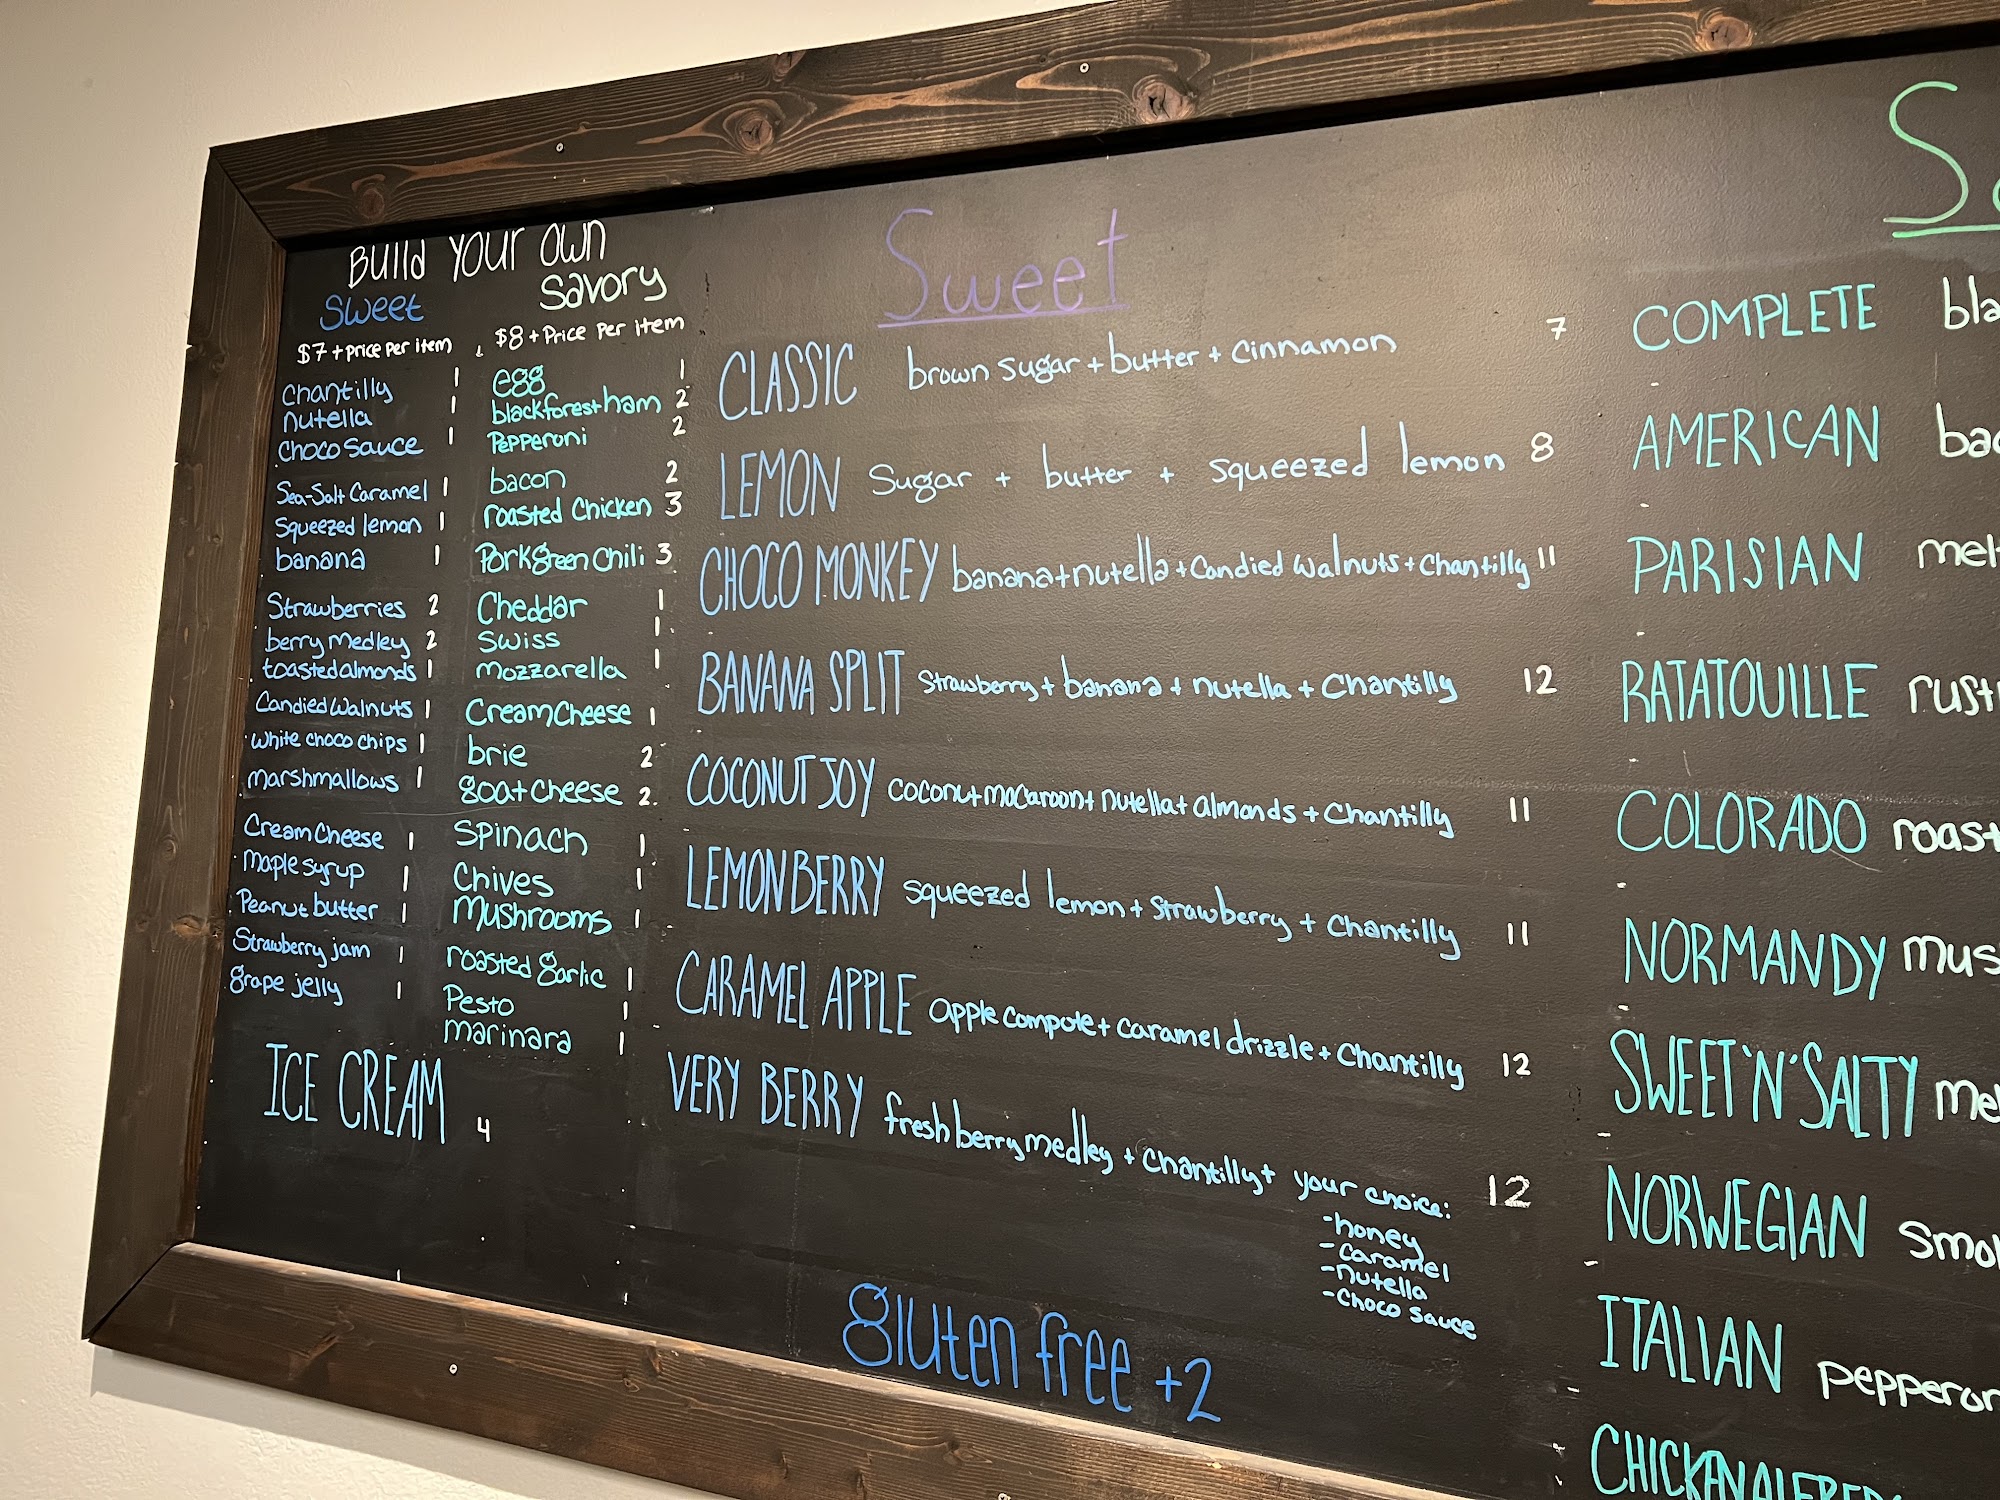 Build Your Own
Sweet
$7 + price per item
Chantilly 1
nutella 1
Choco Sauce 1
Sea-Salt Caramel 1
Squeezed lemon 1
banana 1
Strawberries 2
berry medley 2
toasted almonds 1
Candied Walnuts 1
White choco chips 1
marshmallows 1
Cream Cheese 1
Maple syrup 1
Peanut butter 1
Strawberry jam 1
grape jelly 1
ICE CREAM 4
Savory
$8 + Price Per item
egg 1
blackforest ham 2
Pepperoni 2
bacon 2
roasted Chicken 3
Pork green Chili 3
Cheddar 1
Swiss 1
Mozzarella 1
Cream Cheese 1
brie 2
goat cheese 2
Spinach 1
Chives 1
Mushrooms 1
roasted garlic 1
Pesto 1
marinara 1
Sweet
CLASSIC brown sugar + butter + cinnamon 7
LEMON Sugar + butter + squeezed lemon 8
CHOCO MONKEY banana + nutella + Candied Walnuts + Chantilly 11
BANANA SPLIT Strawberry + banana + nutella + Chantilly 12
COCONUT JOY coconut macaroon + nutella + almonds + Chantilly 11
LEMONBERRY squeezed lemon + strawberry + Chantilly 11
CARAMEL APPLE apple compote + caramel drizzle + Chantilly 12
VERY BERRY fresh berry medley + Chantilly + your choice: 12
- honey
- caramel
- nutella
- Choco sauce
gluten free +2
COMPLETE
AMERICAN
PARISIAN
RATATOUILLE
COLORADO
NORMANDY
SWEET 'N' SALTY
NORWEGIAN
ITALIAN
CHICKEN